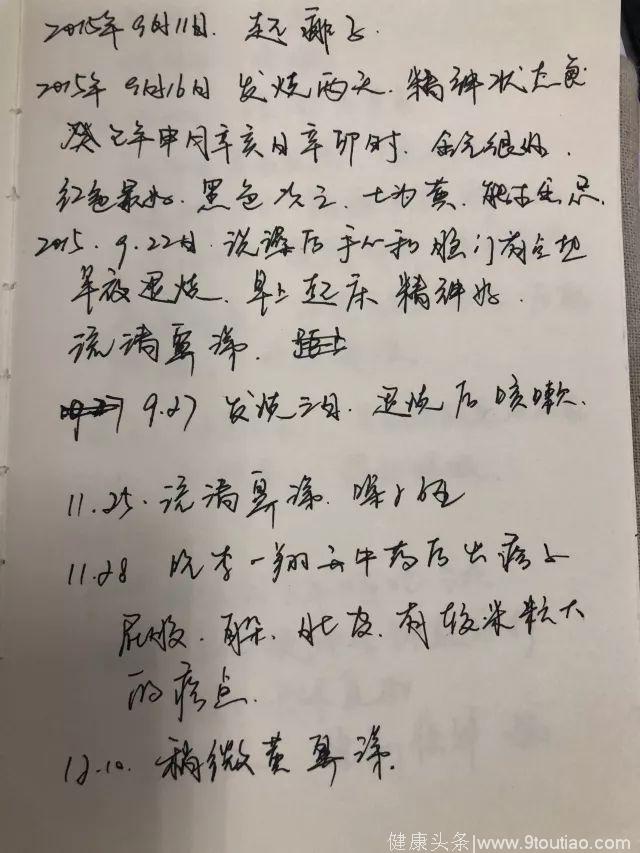 2015年9月11日. 起痱子.
2015年9月16日 发烧两天. 精神状态良
癸巳年申月辛亥日辛卯时. 金完很好.
红色最好. 黑色次之. 土为黄.
2015.9.22日. 洗澡后手心和脸门有点地
半夜退烧. 早上起床精神好.
流清鼻涕.
9.27 发烧三日. 退烧后咳嗽.
11.25. 流清鼻涕. 嗓子哑
11.28 吃李一翔 中药后出疹子
屁股. 耳朵. 肚皮. 有较米粒大
的疹点.
12.10. 稍微黄鼻涕.
健康头条|www.9toutiao.com